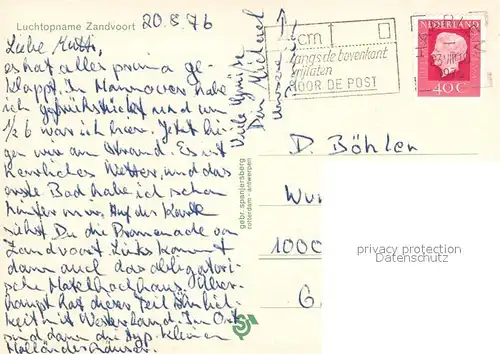 Luchtopname Zandvoort
20.8.76
Liebe Mutti,
es hat alles prima ge-
klappt. In Hannover habe
ich gefrühstückt und um
1/2 6 war ich hier. Jetzt lie-
gen wir am Strand. Es ist
herrliches Wetter, und das
erste Bad habe ich schon
hinter mir. Auf der Karte
siehst Du die Promenade von
Zandvoort. Links kommt
dann auch das obligatori-
sche Hotelhochhaus. Über-
haupt hat dieser Teil Ähnlich-
keit mit Westerland. Im Ort
sind dann die typ. kleinen
Holländerhäuser.
Viele Grüße
Dein Michael
gebr. spanjersberg
rotterdam - antwerpen
cm
langs de bovenkant
vrijlaten
VOOR DE POST
NEDERLAND
40 C
D. Böhler
Wur
1000
G
privacy protection
Datenschutz